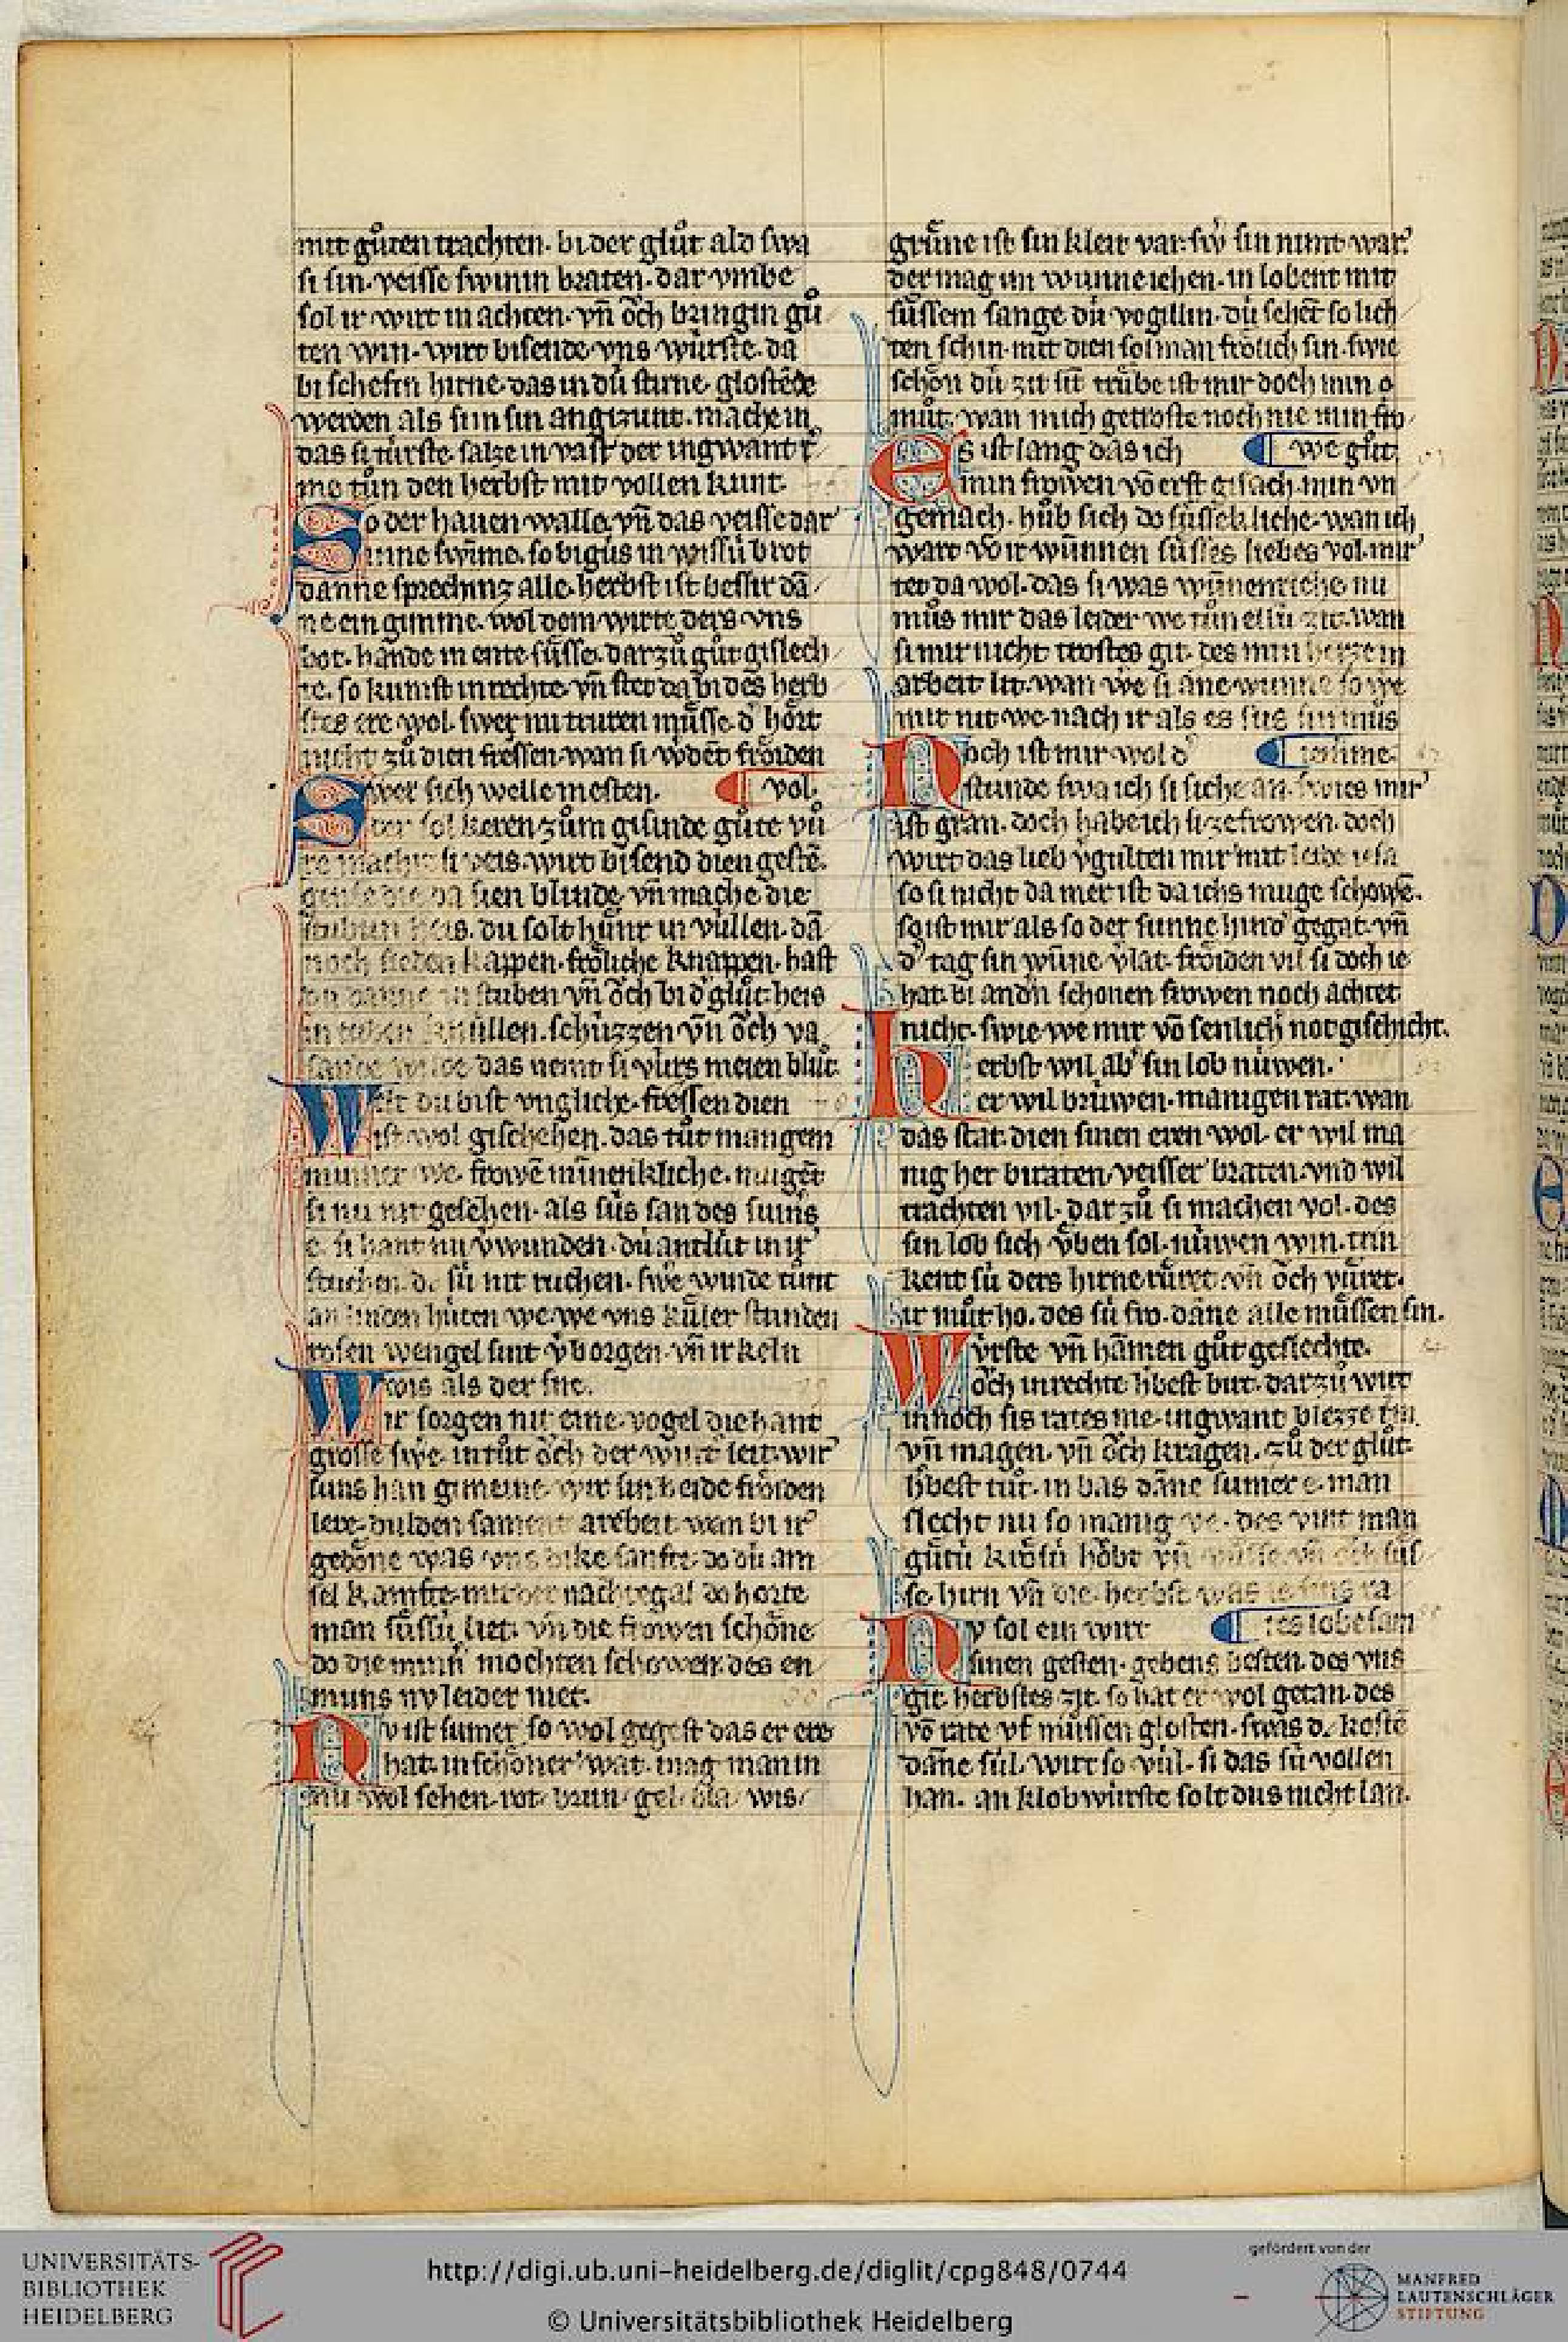 mit gůten trachten. bi der glůt ald swa
si sin. veisse swinin braten. dar vmbe
sol ir wirt in achten. vñ ǒch bringin gů
ten win. wirt bisende vns wúrste. da
bi schefin hirne. das in dú stirne. glostēde
werden als si sin angizunt. mache in
das si túrste. salze in vast der ingwant r
me tůn den herbst mit vollen kunt.
So der hauen walle. vñ das veisse dar
inne swime. so bigus in wissú brot
danne sprechinz alle. herbst ist bessir dā
ne ein gimme. wol dem wirte ders vns
bot. hande in ente fússe. dar zů gůt gislech
te. so kumst in rechte. vñ stet da bi des herb
stes ere wol. swer nu truren músse. d' hȯrt
nicht zů dien fressen. wan si wdēt frȯiden
Swer sich welle mesten. ¶ vol.
der sol keren zům gisinde gůte vů
re machit si veis. wirt bisend dien gestē.
gense die da sien blinde. vñ mache die
stubun heis. du solt hůnr in vúllen. dā
noch sieden kappen. frȯliche knappen. hast
in stuben vñ ǒch bi d' glůt heis
schúzzen vñ ǒch va
das nemt si vúrs meien blůt.
Welt du bist vngliche. fressen dien
ist wol gischehen. das tůt mangem
minner we. frowē minnenkliche. mugēt
si nu nit gesehen. als sús san des sumirs
e. si hant nu v̓wunden. dú antlút in ir
stuchen. dc sú nit ruchen. swe wurde túnt
an linden húten we. we vns kúler stunden
rosen wengel sint v̓borgen. vñ ir keln
wis als der sne.
Wir sorgen nit eine. vogel die hant
grosse swe. in tůt ǒch der wintir leit. wir
suns han gimeine. wir sin beide frȯiden
lere. dulden sament arebeit. wan bi ir
gedȯne was vns dike sanfte. do dú am
sel kamfte. mit der nachtegal do horte
man sússú liet. vñ die frowen schȯne
do die minnir mochten schowen. des en
muns nv leider niet.
Nv ist sumer so wol gegest das er ere
hat. in schȯner wat. mag man in
nu wol sehen. rot. brun. gel. bla. wis.
grůne ist sin kleit var. sw̓ sin nimt war
der mag im wunne iehen. in lobent mit
sússem sange dú vogillin. dú sehēt so lich
ten schin. mit dien sol man frȯlich sin. swie
schȯn dú zit sit trúbe ist mir doch min o
můt. wan mich getroste noch nie min fro
Es ist lang das ich ¶ we gůt.
min frowen vō erst gisach. min vn
gemach. hůb sich do sússekliche. wan ich
wart vō ir wúnnen sússes liebes vol. mir
tet da wol. das si was wúnnenriche. nu
můs mir das leider we tůn ellú zit. wan
si mir nicht trostes git. des min herze in
arbeit lit. wan we si ane wunne so we
mir nit we. nach ir als es sus sin můs
Noch ist mir wol d' ¶ iemme.
stunde swa ich si siche an. swies mir
ist gran. doch habe ich si ze frowen. doch
wirt das lieb v̓gulten mir mit leide u sa
so si nicht da mer ist da ichs muge schowē.
so ist mir als so der sunne hind' gegat. vñ
d' tag sin wúne v̓lat. frȯiden vil si doch ie
hat. bi andn̄ schonen frowen noch achtet
nicht. swie we mir vō senlich not gischicht.
Herbst wil ab' sin lob núwen.
er wil brúwen. manigen rat. wan
das stat. dien sinen eren wol. er wil ma
nig her biraten. veisser braten. vnd wil
trachten vil. dar zů si machen vol. des
sin lob sich v̓ben sol. núwen win. trin
kent sú ders hirne rúret. vñ ǒch vúret.
ir můt ho. des sú fro. dāne alle mússen sin.
Wúrste vñ hāmen gůt geslechte.
ǒch in rechte. h̓best birt. dar zů wirt
in noch sis rates me. ingwant blezze tm
vñ magen. vñ ǒch kragen. zů der glůt.
h̓best tůt. in bas dāne sumer e. man
slecht nu so manig ve. des vint man
gůtú krȯsú hȯbt vñ vússe. vñ ǒch sús
se hirn vñ die. herbst was ie sins ra
Nv sol ein wirt ¶ tes lobesam
sinen gesten. gebens besten. des vns
git. herbstes zit. so hat er wol getan. des
vō rate vf mússen glosten. swas dc kostē
dāne súl. wirt so vúl. si das sú vollen
han. an klobwúrste solt dus nicht lan.
UNIVERSITÄTS-
BIBLIOTHEK
HEIDELBERG
http://digi.ub.uni-heidelberg.de/diglit/cpg848/0744
© Universitätsbibliothek Heidelberg
gefördert von der
MANFRED
LAUTENSCHLÄGER
STIFTUNG